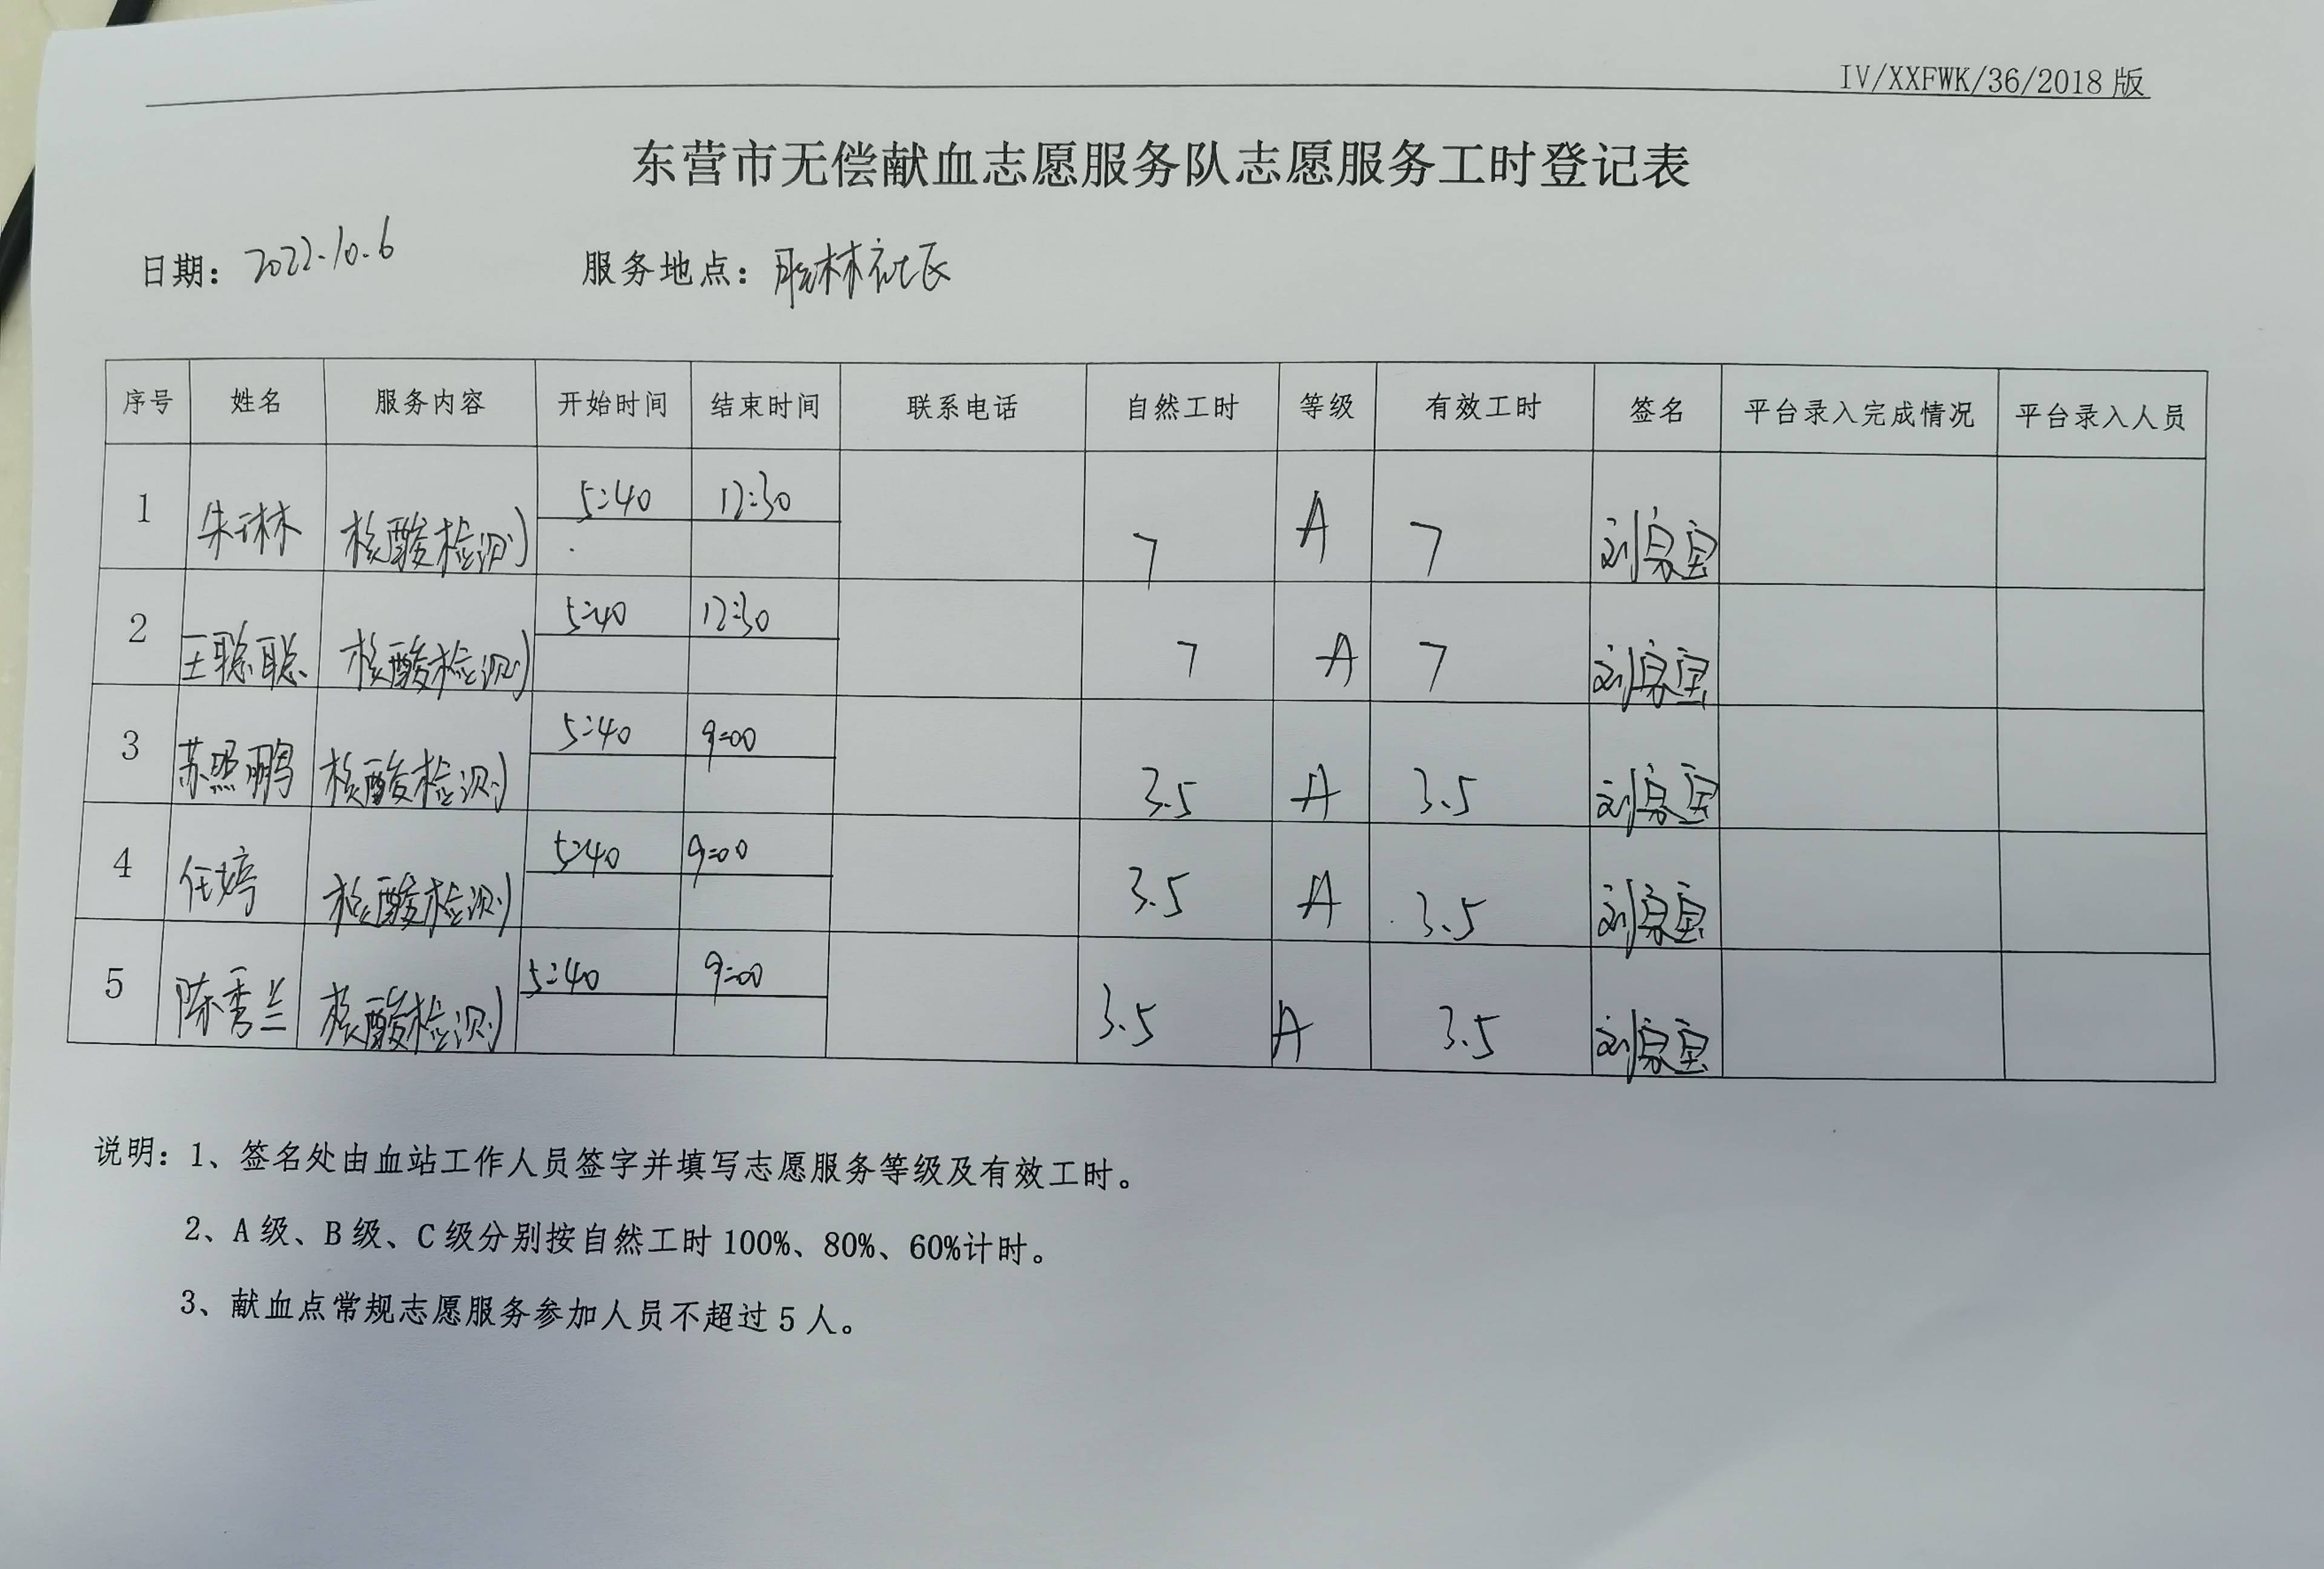 IV/XXFWK/36/2018 版
东营市无偿献血志愿服务队志愿服务工时登记表
日期： 2022.10.6 服务地点：
序号 姓名 服务内容 开始时间 结束时间 联系电话 自然工时 等级 有效工时 签名 平台录入完成情况 平台录入人员
1 朱琳 核酸检测 5:40 12:30 7 A 7 刘泉宝
2 王聪聪 核酸检测 5:40 12:30 7 A 7 刘泉宝
3 苏照鹏 核酸检测 5:40 9:00 3.5 A 3.5 刘泉宝
4 任婷 核酸检测 5:40 9:00 3.5 A 3.5 刘泉宝
5 陈秀兰 核酸检测 5:40 9:00 3.5 A 3.5 刘泉宝
说明：1、签名处由血站工作人员签字并填写志愿服务等级及有效工时。
2、A 级、B 级、C 级分别按自然工时 100%、80%、60%计时。
3、献血点常规志愿服务参加人员不超过 5 人。